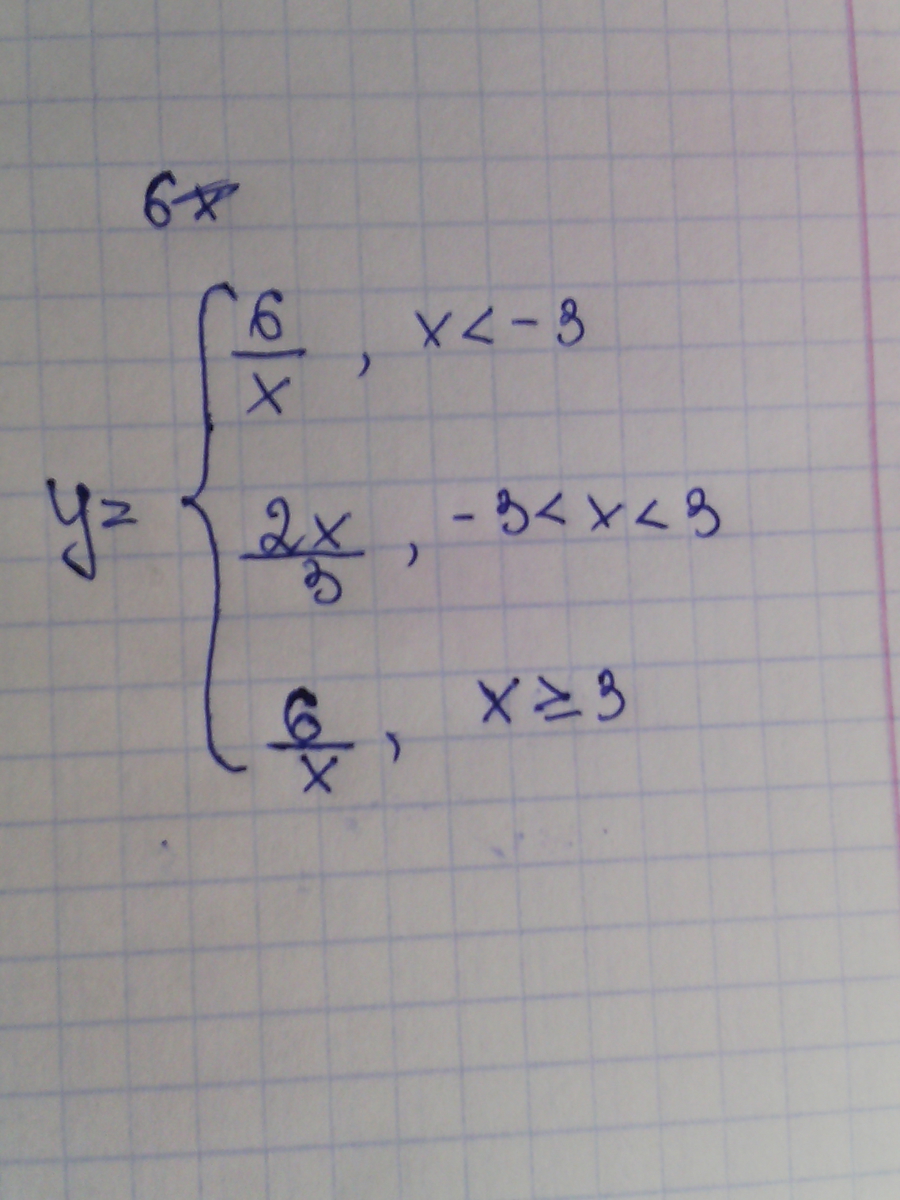 6x
6/x, x < -3
y = 2x/3, -3 < x < 3
6/x, x ≥ 3